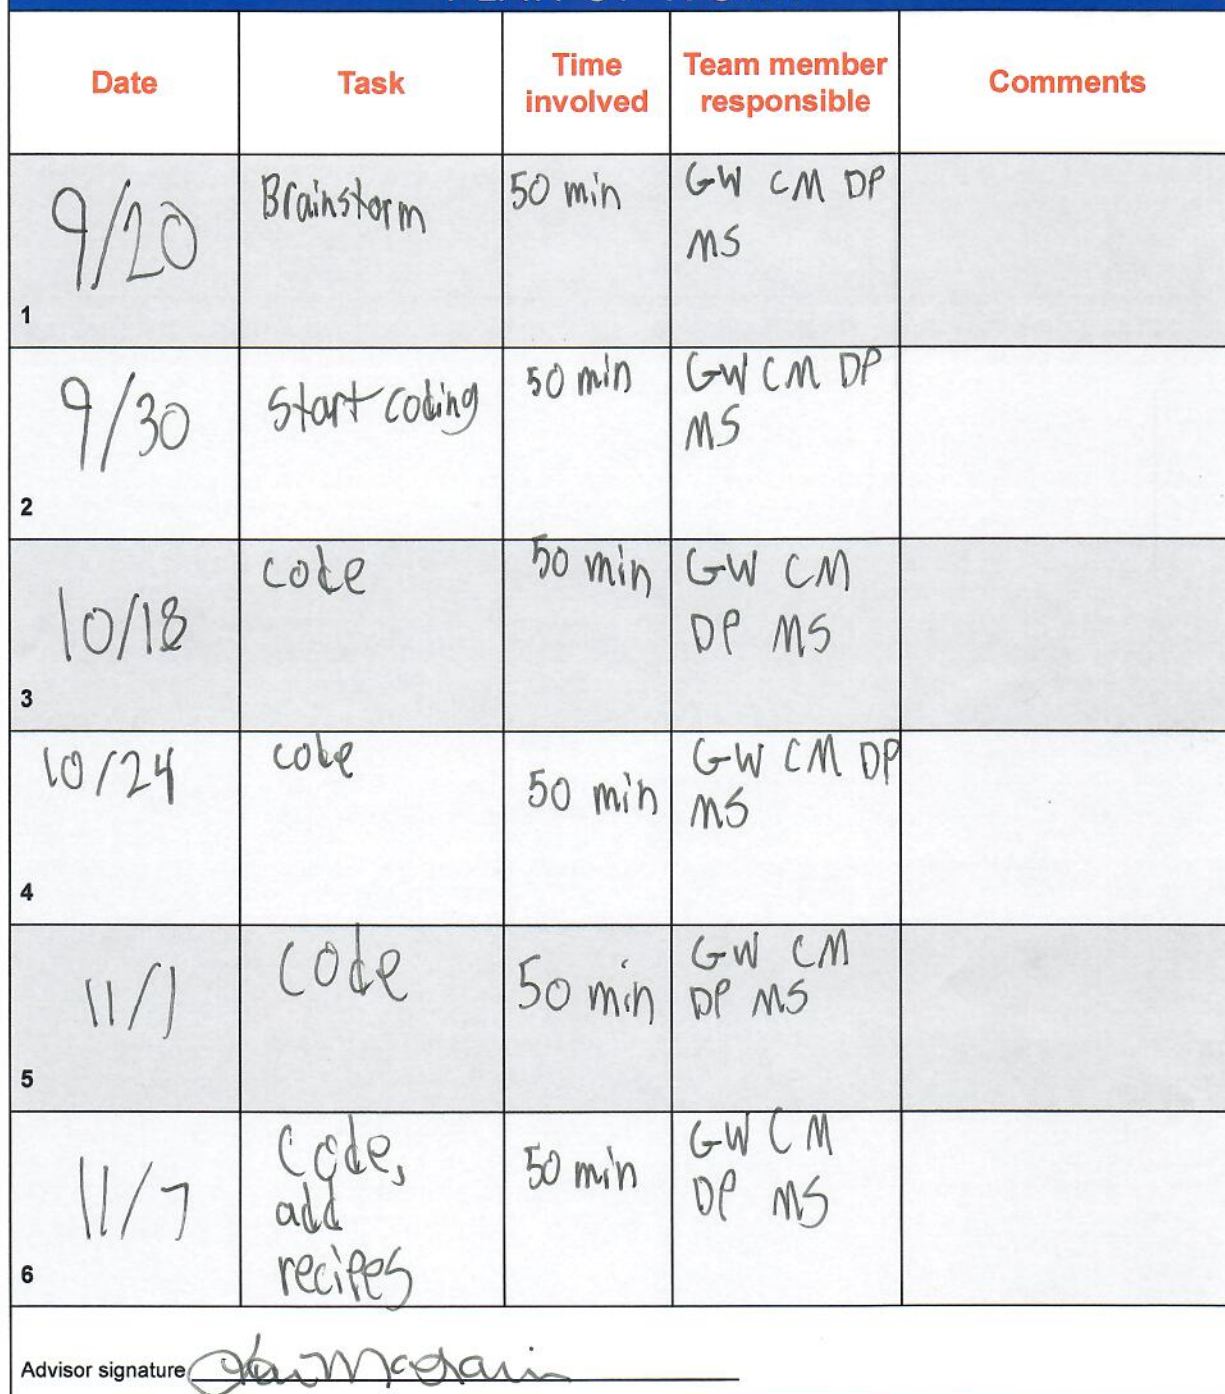 Date
Task
Time
involved
Team member
responsible
Comments
9/20
Brainstorm
50 min
GW CM DP
MS
1
9/30
Start coding
50 min
GW CM DP
MS
2
10/18
code
50 min
GW CM
DP MS
3
10/24
code
50 min
GW CM DP
MS
4
11/1
code
50 min
GW CM
DP MS
5
11/7
Code,
add
recipes
50 min
GW CM
DP MS
6
Advisor signature